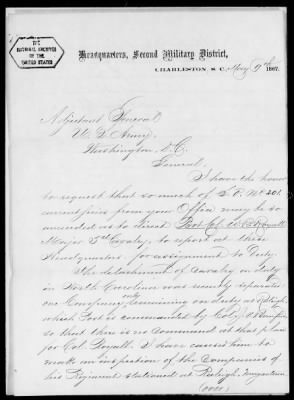 THE
NATIONAL ARCHIVES
OF THE
UNITED STATES
Headquarters, Second Military District,
CHARLESTON, S. C., May 9th 1867.
Adjutant General
U. S. Army,
Washington, D.C.
General,
I have the honor
to request that so much of S.O. No 201
current series from your Office may be so
amended as to direct Bvt Col. W B Royall
Major 5th Cavalry, to report at these
Headquarters for assignment to Duty.
The detachment of Cavalry on duty
in North Carolina was merely separated
one Company only remaining on duty at Raleigh
which Post is commanded by Col.
so that there is no command at that place
for Col Royall. I have caused him to
make an inspection of the companies of
his Regiment stationed at Raleigh, Morganton
(over)